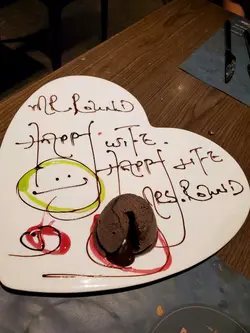 MR. ROUND
HAPPY WIFE
HAPPY LIFE
MRS. ROUND